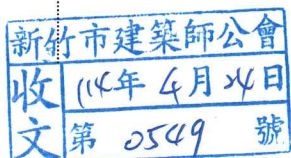 新竹市建築師公會
收文
114年4月24日
第0549號